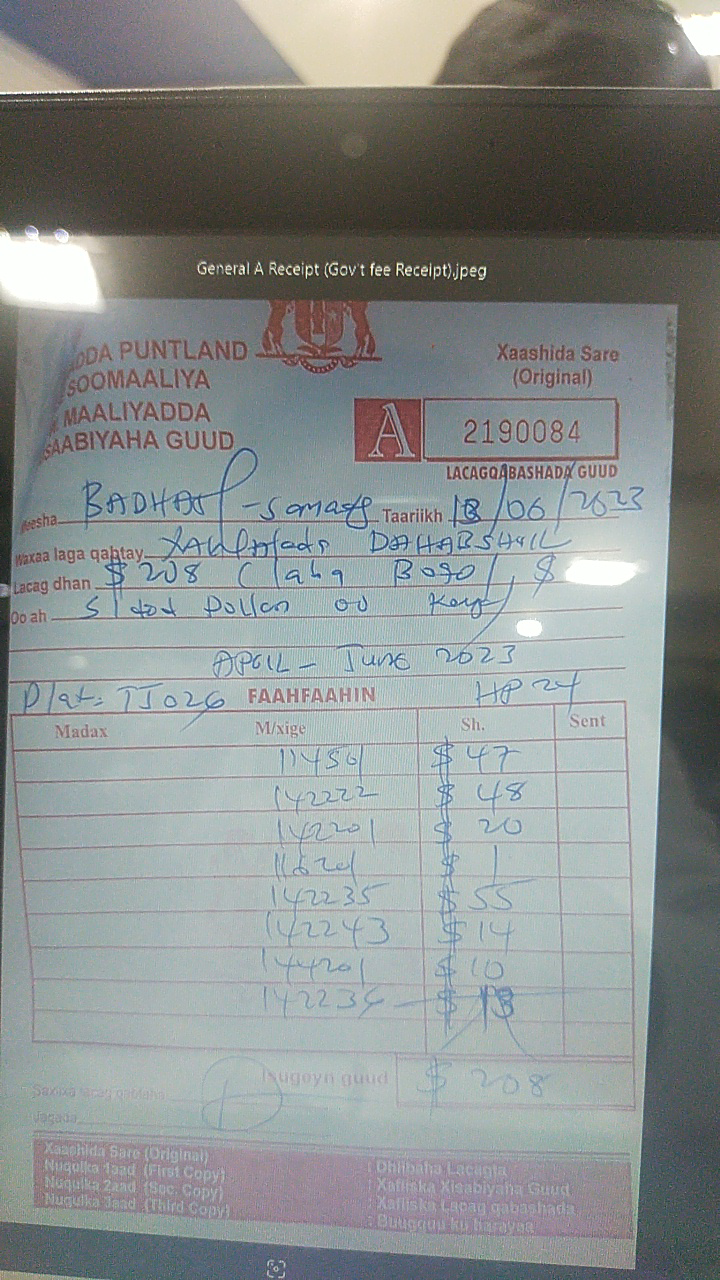 General A Receipt (Gov't fee Receipt).jpeg
DDA PUNTLAND
SOOMAALIYA
MAALIYADDA
SAABIYAHA GUUD
Xaashida Sare
(Original)
A 2190084
LACAGQABASHADA GUUD
eesha BADHAN - Taariikh 18/06/2023
Waxaa laga qabtay DAHABSHIIL
Lacag dhan $ 208 ( laba Boqol, $
Oo ah
APRIL - June 2023
Plat: TJ026 FAAHFAAHIN HP 24
Madax M/xige Sh. Sent
11450 $ 47
142222 $ 48
142201 $ 20
$ 1
142235 $ 55
142243 $ 14
144201 $ 10
142236 $ 13
Isugeyn guud $ 208
Saxiixa lacag qabtaha
Jagada
Xaashida Sare (Original) : Dhiibaha Lacagta
Nuqulka 1aad (First Copy) : Xafiiska Xisabiyaha Guud
Nuqulka 2aad (Sec. Copy) : Xafiiska Lacag qabashada
Nuqulka 3aad (Third Copy) : Buugguu ku harayaa